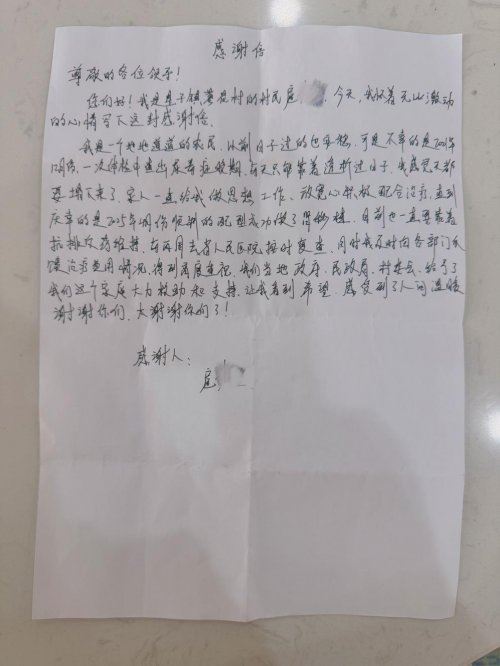 感谢信
尊敬的各位领导！
您们好！我是星子镇蓼花村的村民扈 今天，我怀着无比激动
的心情写下这封感谢信。
我是一个地地道道的农民，以前日子过的也平稳，可是不幸的是
一次体检中查出尿毒症晚期，每天只能靠着透析过日子，我感觉天都
要塌下来了，家人一直给我做思想工作，放宽心积极配合治疗，直到
庆幸的是2025年 份顺利的配型成功做了肾移植，目前也一直要靠着
抗排异药维持，每两周去省人民医院按时复查，同时我及时向各部门反
馈治疗费用情况，得到高度重视，我们当地政府，民政局，村委会，给予了
我们这个家庭大力救助和支持，让我看到希望，感受到了人间温暖
谢谢你们，太谢谢你们了！
感谢人：
扈